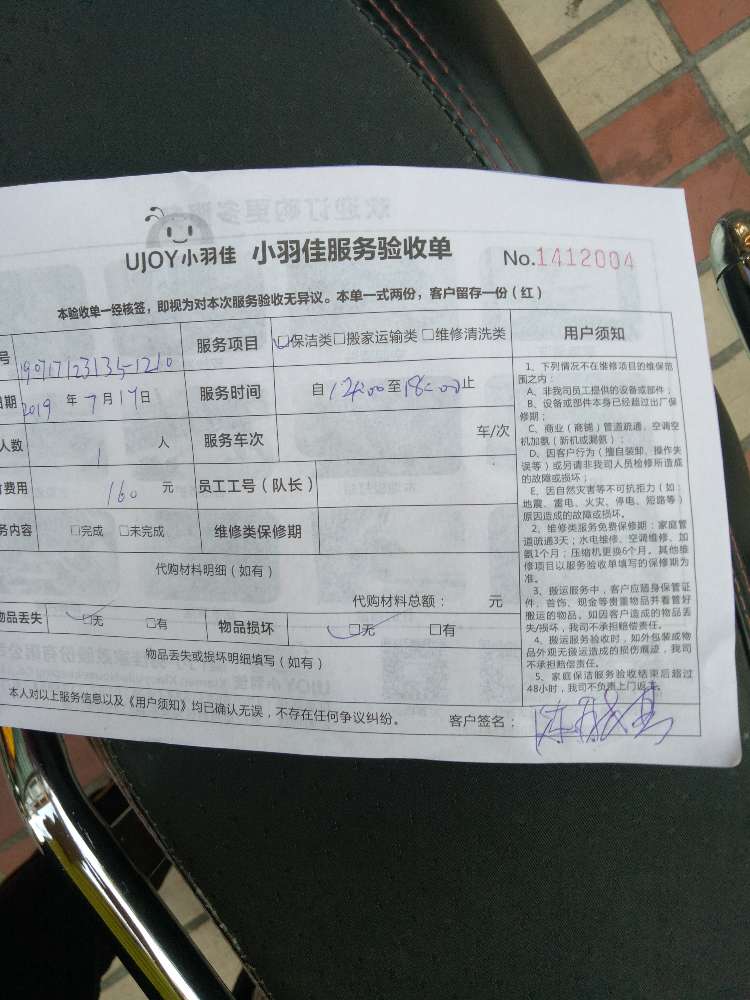 UJOY小羽佳 小羽佳服务验收单 No.1412004
本验收单一经核签，即视为对本次服务验收无异议。本单一式两份，客户留存一份（红）
号 服务项目 □保洁类□搬家运输类□维修清洗类
日期 2019 年 7 月 17 日 服务时间 自 14:00 至 18:00 止
人数 1 人 服务车次 车/次
费用 160 元 员工工号（队长）
务内容 □完成 □未完成 维修类保修期
代购材料明细（如有）
代购材料总额： 元
物品丢失 □无 □有 物品损坏 □无 □有
物品丢失或损坏明细填写（如有）
本人对以上服务信息以及《用户须知》均已确认无误，不存在任何争议纠纷。 客户签名：
用户须知
1、下列情况不在维修项目的维保范
围之内：
A、非我司员工提供的设备或部件；
B、设备或部件本身已经超过出厂保
修期；
C、商业（商铺）管道疏通，空调空
机加氨（新机或漏氨）；
D、因客户行为（擅自装卸、操作失
误等）或另请非我司人员检修所造成
的故障或损坏；
E、因自然灾害等不可抗拒力（如：
地震、雷电、火灾、停电、短路等）
原因造成的故障或损坏。
2、维修类服务免费保修期：家庭管
道疏通3天；水电维修、空调维修、加
氨1个月；压缩机更换6个月。其他维
修项目以服务验收单填写的保修期为
准。
3、搬运服务中，客户应随身保管证
件、首饰、现金等贵重物品并看管好
搬运的物品。如因客户造成的物品丢
失/损坏，我司不承担赔偿责任。
4、搬运服务验收时，如外包装或物
品外观无搬运造成的损伤痕迹，我司
不承担赔偿责任。
5、家庭保洁服务验收结束后超过
48小时，我司不负责上门返